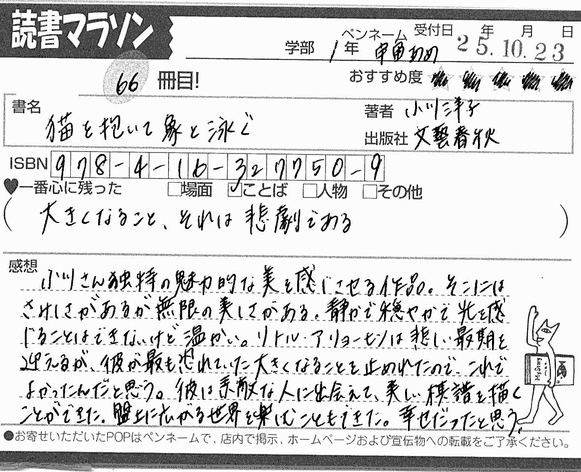 読書マラソン
学部 1年 ペンネーム 受付日 年 月 日
25.10.23
66 冊目!
おすすめ度 ★★★★★
書名 猫を抱いて象と泳ぐ
著者 小川洋子
出版社 文藝春秋
ISBN 978-4-16-327750-9
♥一番心に残った □場面 ☑ことば □人物 □その他
(大きくなること、それは悲劇である)
感想
小川さん独特の魅力的な美を感じさせる作品。そこには
さみしさがあるが無限の美しさがある。静かで穏やかで光を感
じることはできないけど温かい。リトル・アリョーヒンは悲しい最期を
迎えるが、彼が最も恐れていた大きくなることを止めれたので、これで
よかったんだと思う。彼は素敵な人に出会えて、美しい棋譜を描く
ことができた。盤上に広がる世界を楽しむこともできた。幸せだったと思う。
●お寄せいただいたPOPはペンネームで、店内で掲示、ホームページおよび宣伝物への転載をご了承ください。